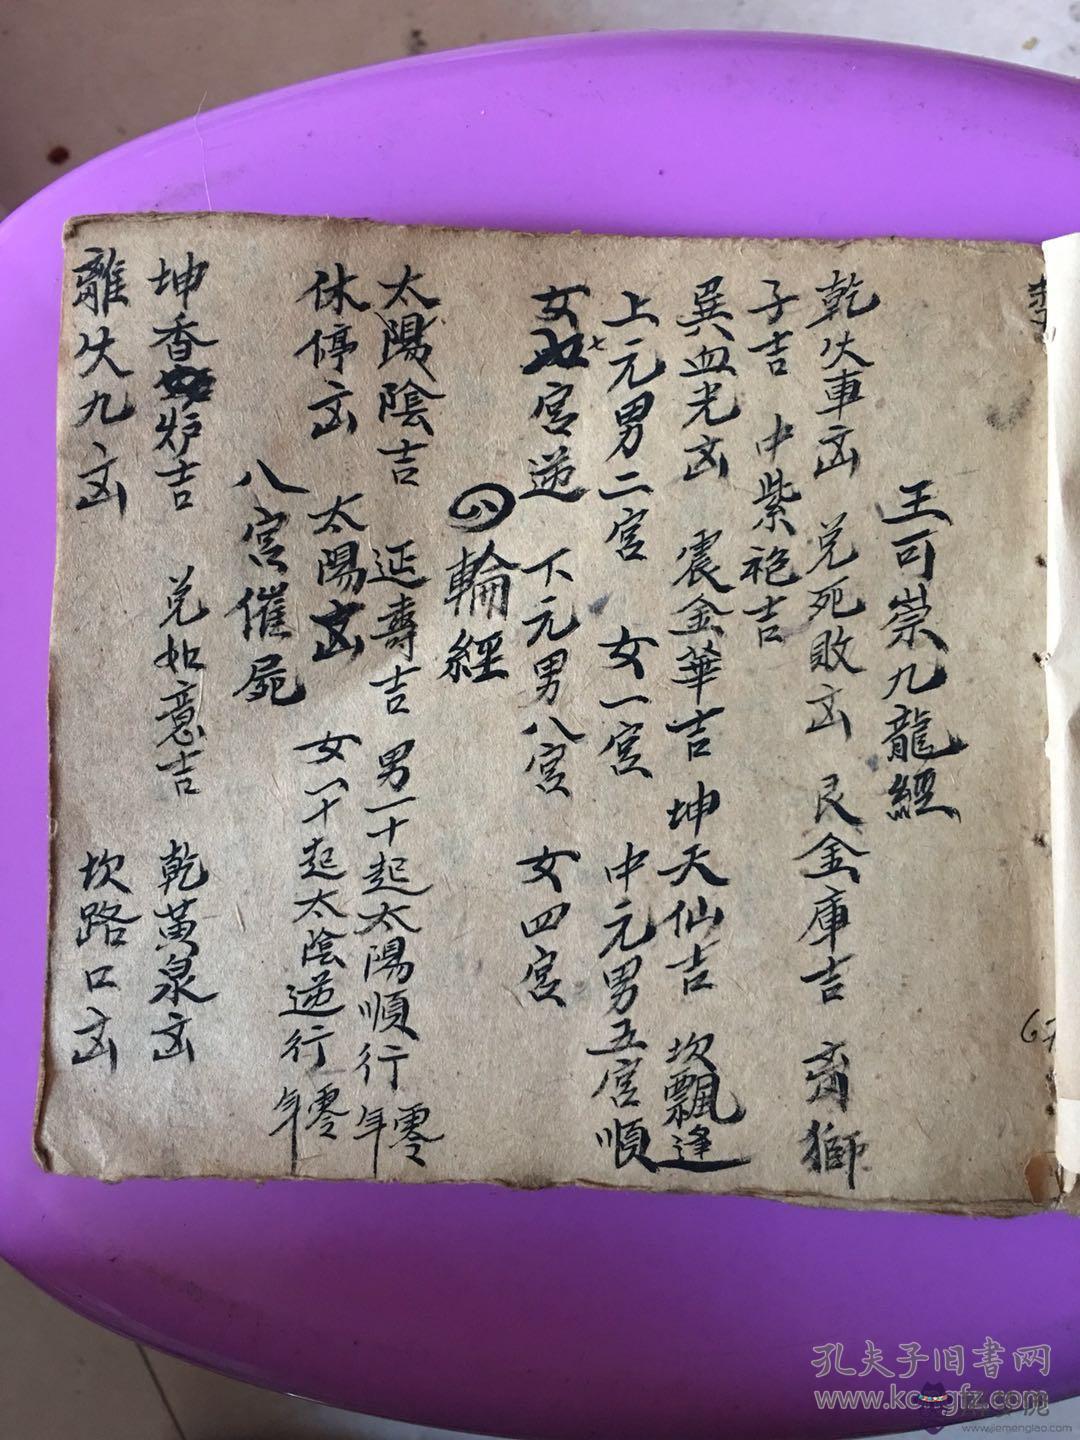 王可崇九龍經
乾火車凶 兑死敗凶 艮金庫吉 离獅
子吉 中紫袍吉
巽血光凶 震金華吉 坤天仙吉 坎飄逢
上元男二宮 女一宮 中元男五宮順
女七宮逆 下元男八宮 女四宮
輪經
太陽陰吉 延壽吉 男一十起太陽順行零年
休停凶 太陽凶 女一十起太陰逆行零年
八宮催屍
坤香炉吉 兑如意吉 乾黃泉凶
離火九凶 坎路口凶
67
孔夫子旧書网
www.kongfz.com
www.jiemenglao.com